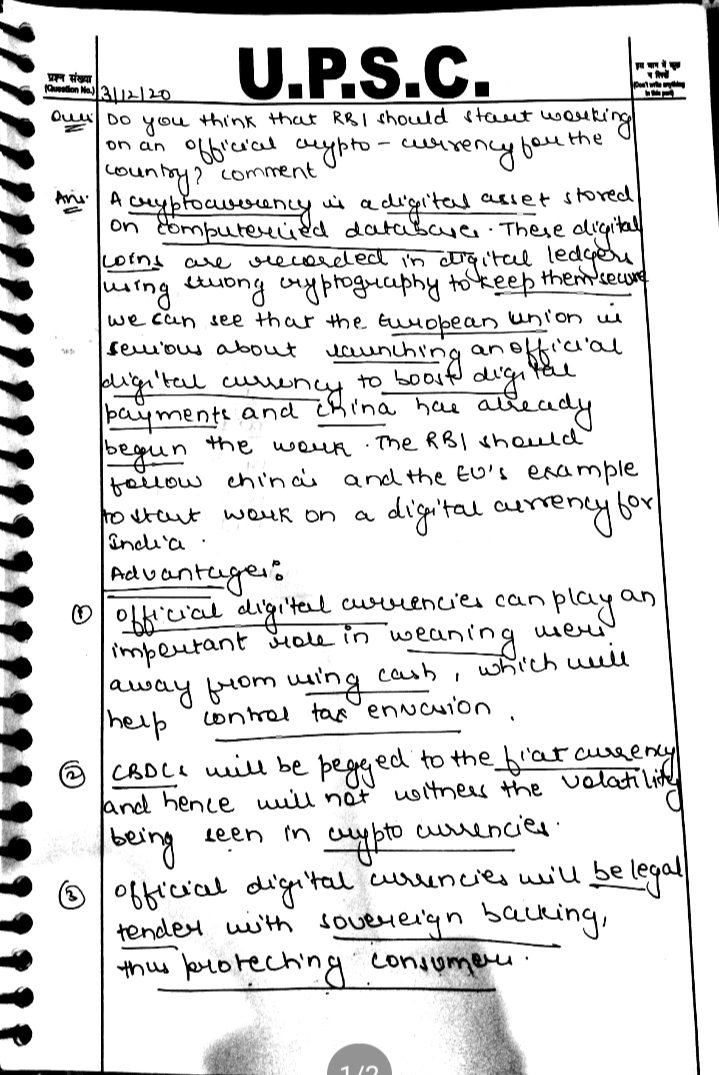 U.P.S.C.
प्रश्न संख्या
(Question No.)
(Don't write anything
in this part)
3/12/20
Ques: Do you think that RBI should start working
on an official crypto - currency for the
country? comment
Ans: A cryptocurrency is a digital asset stored
on computerised databases. These digital
coins are recorded in digital ledgers
using strong cryptography to keep them secure
we can see that the European Union is
serious about launching an official
digital currency to boost digital
payments and china has already
begun the work. The RBI should
follow china's and the EU's example
to start work on a digital currency for
India.
Advantages:
① Official digital currencies can play an
important role in weaning users
away from using cash, which will
help control tax envasion.
② CBDCs will be pegged to the fiat currency
and hence will not witness the volatility
being seen in crypto currencies.
③ Official digital currencies will be legal
tender with sovereign backing,
thus protecting consumers.
1/2